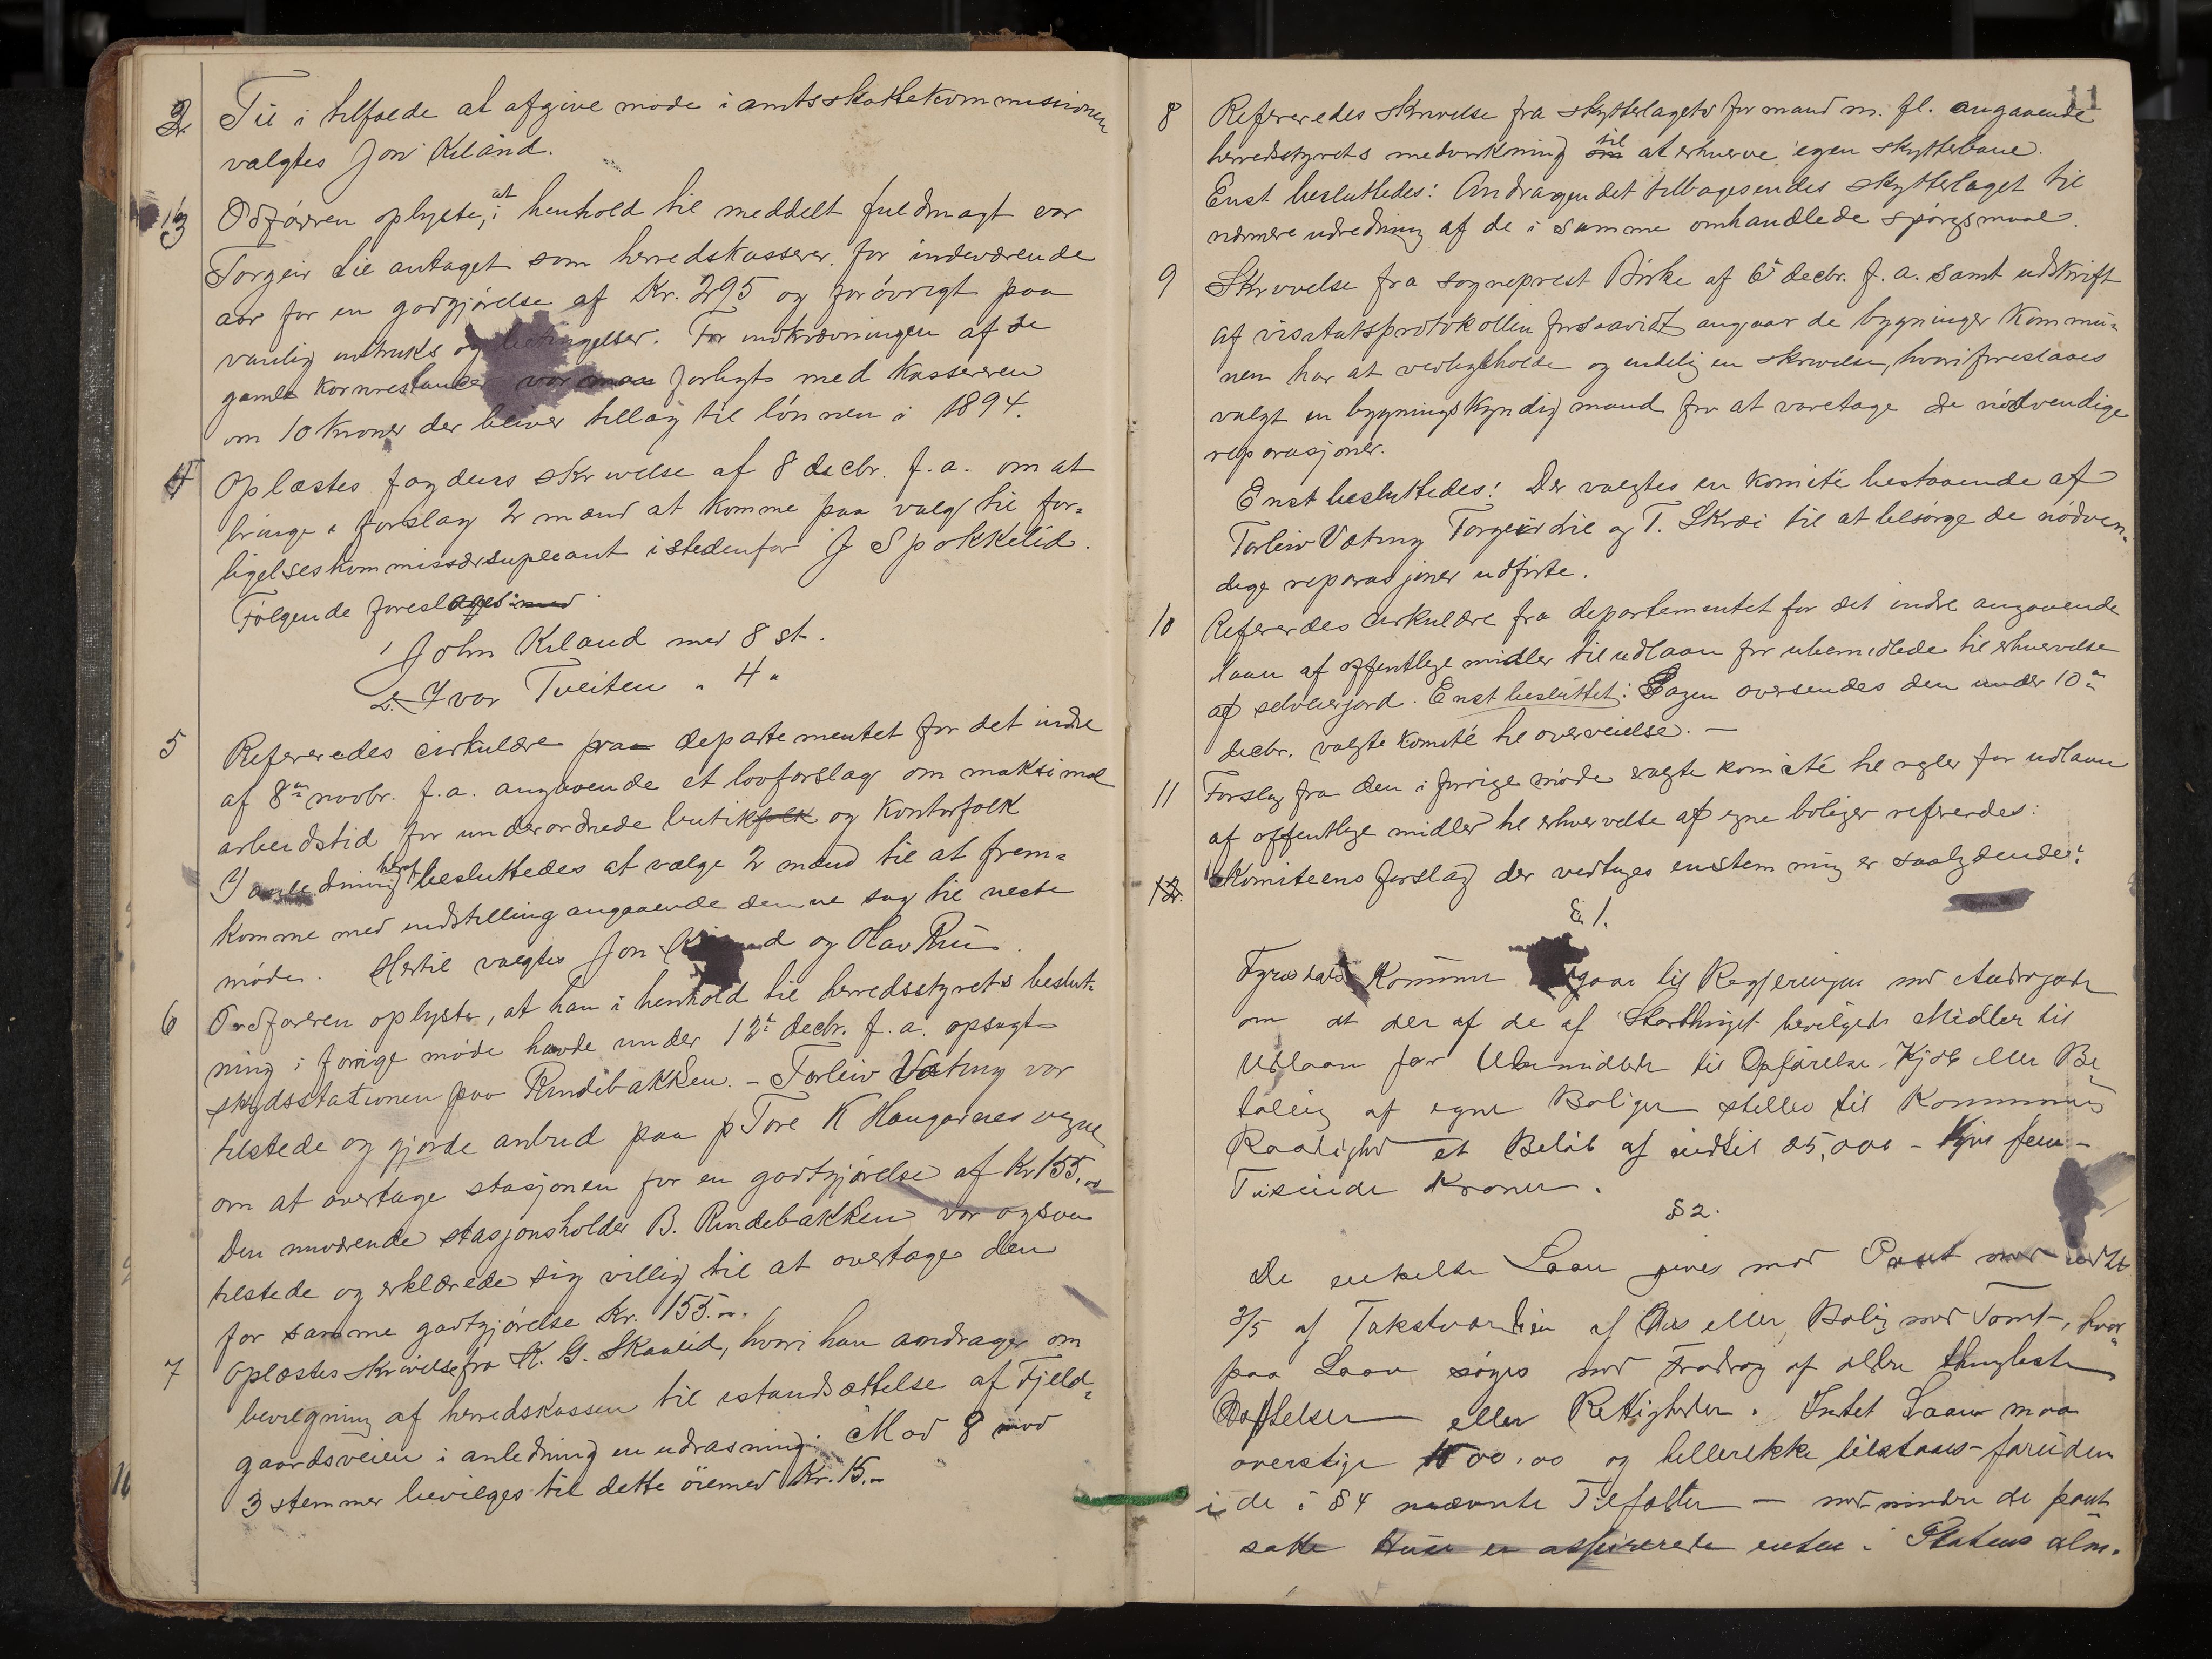 2. Til i tilfælde at afgive møde i amtsskattekommissionen
valgtes Jon Kiland.
3 Ordføreren oplyste, at i henhold til meddelt fuldmagt var
Torgeir Lie antaget som herredskasserer for indeværende
aar for en godgjørelse af Kr. 295 og forøvrigt paa
vanlig instruks og betingelser. For indkrævningen af de
gamle kornrestancer var man forligt med kassereren
om 10 kroner der bliver tillæg til lønnen i 1894.
4 Oplæstes fogdens skrivelse af 8 decbr. f.a. om at
bringe i forslag 2 mænd at komme paa valg til for-
ligelseskommissærsupleant istedenfor J Spokkelid.
Følgende foresloges med
1 John Kiland med 8 st.
2. Ivar Tveiten " 4 "
5 Refereredes cirkulære fra departementet for det indre
af 8de novbr. f.a. angaaende et lovforslag om maksimal
arbeidstid for underordnede butik og kontorfolk
I anledning heraf besluttedes at vælge 2 mænd til at frem-
komme med indstilling angaaende denne sag til neste
møde. Hertil valgtes Jon Kiland og Olav Rui.
6 Ordføreren oplyste, at han i henhold til herredsstyrets beslut-
ning i forrige møde havde under 12te decbr. f.a. opsagt
skydsstationen paa Rindebakken. - Torleiv Vætting var
tilstede og gjorde anbud paa Tore K Haugarnes vegne
om at overtage stasjonen for en godtgjørelse af Kr 155.00
Den nuværende stasjonsholder B. Rindebakken var ogsaa
tilstede og erklærede sig villig til at overtage den
for samme godtgjørelse Kr. 155.00.
7 Oplæstes skrivelse fra K. G. Skaalid, hvori han andrager om
bevilgning af herredskassen til istandsættelse af Fjeld-
gaardsveien i anledning en udrasning. Mod 8 mod
3 stemmer bevilges til dette øiemed Kr. 15.-
11
8 Refereredes skrivelse fra skytterlagets formand m. fl. angaaende
herredsstyrets medvirkning til at erhverve egen skytterbane.
Enst besluttedes: Andragendet tilbagesendes skytterlaget til
nærmere udredning af de i samme omhandlede spørgsmaal.
9 Skrivelse fra sogneprest Birke af 6te decbr. f.a. samt udskrift
af visitatsprotokollen forsaavidt angaar de bygninger kommu-
nen har at vedligeholde og endelig en skrivelse, hvori foreslaaes
valgt en bygningskyndig mand for at varetage de nødvendige
reparasjoner.
Enst besluttedes: Der valgtes en komite bestaaende af
Torleiv Vætting Torgeir Lie og T. Skræi til at besørge de nødven-
dige reparasjoner udførte.
10 Refereredes cirkulære fra departementet for det indre angaaende
laan af offentlige midler til udlaan for ubemidlede til erhvervelse
af selveierjord. Enst besluttet: Sagen oversendes den under 10de
decbr. valgte komité til overveielse. -
11 Forslag fra den i forrige møde valgte komité til regler for udlaan
af offentlige midler til erhvervelse af egne boliger refereredes:
12. Komiteens forslag der vedtages enstemmig er saalydende:
§ 1.
Fyrisdals Kommune gaar til Regjeringen med Andragende
om at der af de af Storthinget bevilgede Midler til
Udlaan for Ubemidlede til Opførelse, Kjøb eller Be-
taling af egne Boliger stilles til Kommunens
Raadighed et Beløb af indtil 25,000 - Tyve fem-
Tusinde Kroner.
§ 2.
De enkelte Laan gives mod Pant med indtil
3/5 af Takstværdien af Hus eller Bolig med Tomt, hvor-
paa Laan søges med Fradrag af ældre thinglæste
Heftelser eller Rettigheder. Intet Laan maa
overstige 1500.00 og heller ikke tilstaaes - foruden
i de i § 4 nævnte Tilfælder - med mindre de pant-
satte Huse er assurerede enten i Statens alm.